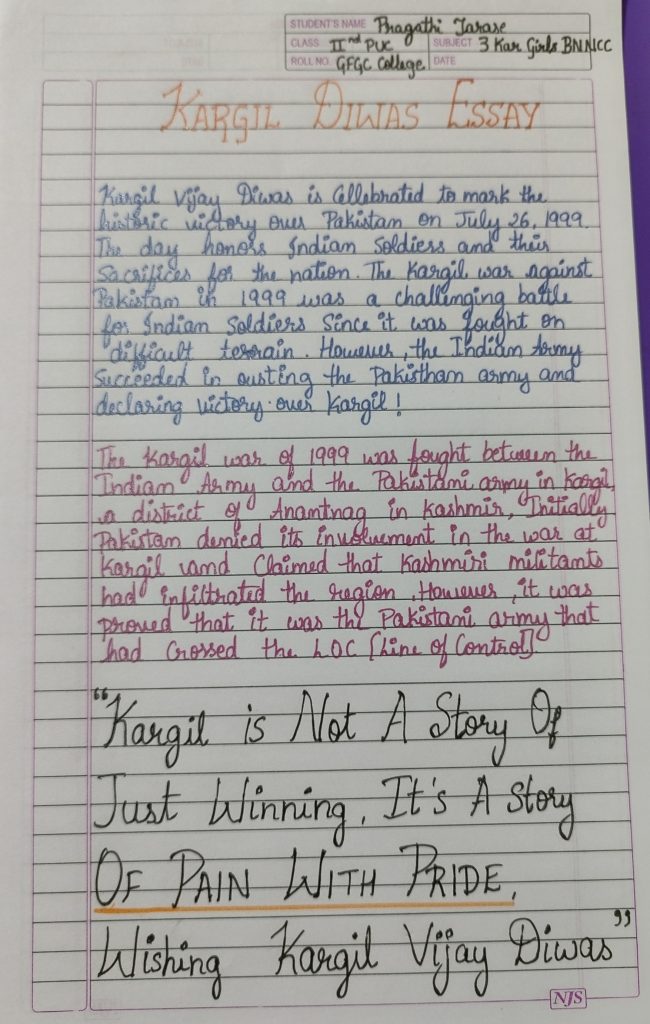 STUDENT'S NAME Pragathi Jarase
CLASS IInd PUC SUBJECT 3 Kar Girls BN NCC
ROLL NO. GFGC College DATE
KARGIL DIWAS ESSAY
Kargil Vijay Diwas is Cellebrated to mark the
historic victory over Pakistam on July 26, 1999.
The day honors Indian Soldiers and their
Sacrifices for the nation. The Kargil war against
Pakistam in 1999 was a challenging battle
for Indian Soldiers Since it was fought on
difficult terrain. However, the Indian Army
Succeeded in ousting the Pakistham army and
declaring victory over Kargil!
The Kargil war of 1999 was fought between the
Indian Army and the Pakistami army in Kargil,
a district of Anamtnag in Kashmir, Initially
Pakistam demied its involvement in the war at
Kargil and Claimed that Kashmiri militamts
had infiltrated the region. However, it was
proved that it was the Pakistami army that
had Crossed the LOC [Line of Control].
"Kargil is Not A Story Of
Just Winning, It's A Story
OF PAIN WITH PRIDE,
Wishing Kargil Vijay Diwas"
NJS